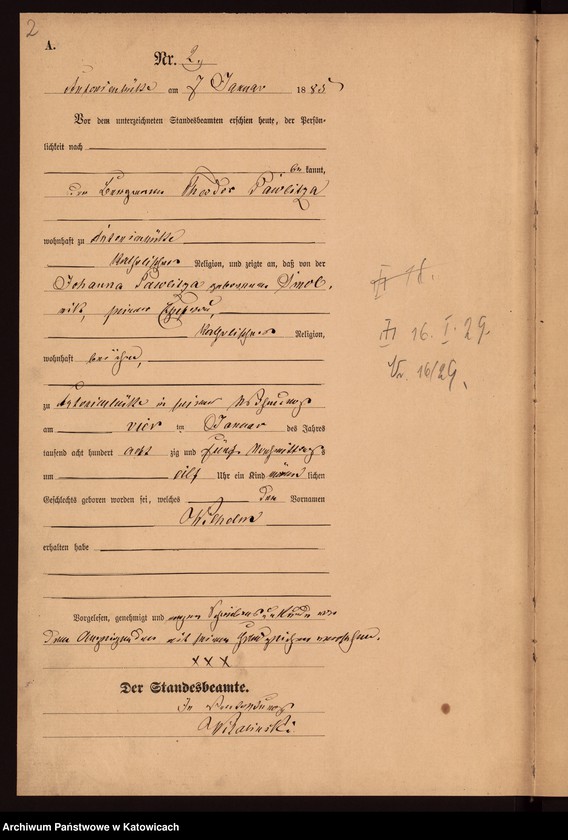 2
A.
Nr. 2.
Antonienhütte am 7 Januar 1885
Vor dem unterzeichneten Standesbeamten erschien heute, der Persön-
lichkeit nach
be kannt,
der Theodor Pawlitza
wohnhaft zu Antonienhütte
katholischer Religion, und zeigte an, daß von der
Johanna Pawlitza geborenen Smol-
nik, seiner Ehefrau,
katholischer Religion,
wohnhaft bei ihm,
zu Antonienhütte in seiner Wohnung
am vier ten Januar des Jahres
tausend acht hundert acht zig und fünf Nachmittags
um eilf Uhr ein Kind männ lichen
Geschlechts geboren worden sei, welches den Vornamen
Wilhelm
erhalten habe
Vorgelesen, genehmigt und wegen Schreibensunkunde von
dem Anzeigenden mit seinem Handzeichen versehen.
xxx
Der Standesbeamte.
In Vertretung
16. I. 29.
Nr. 16/29.
Archiwum Państwowe w Katowicach